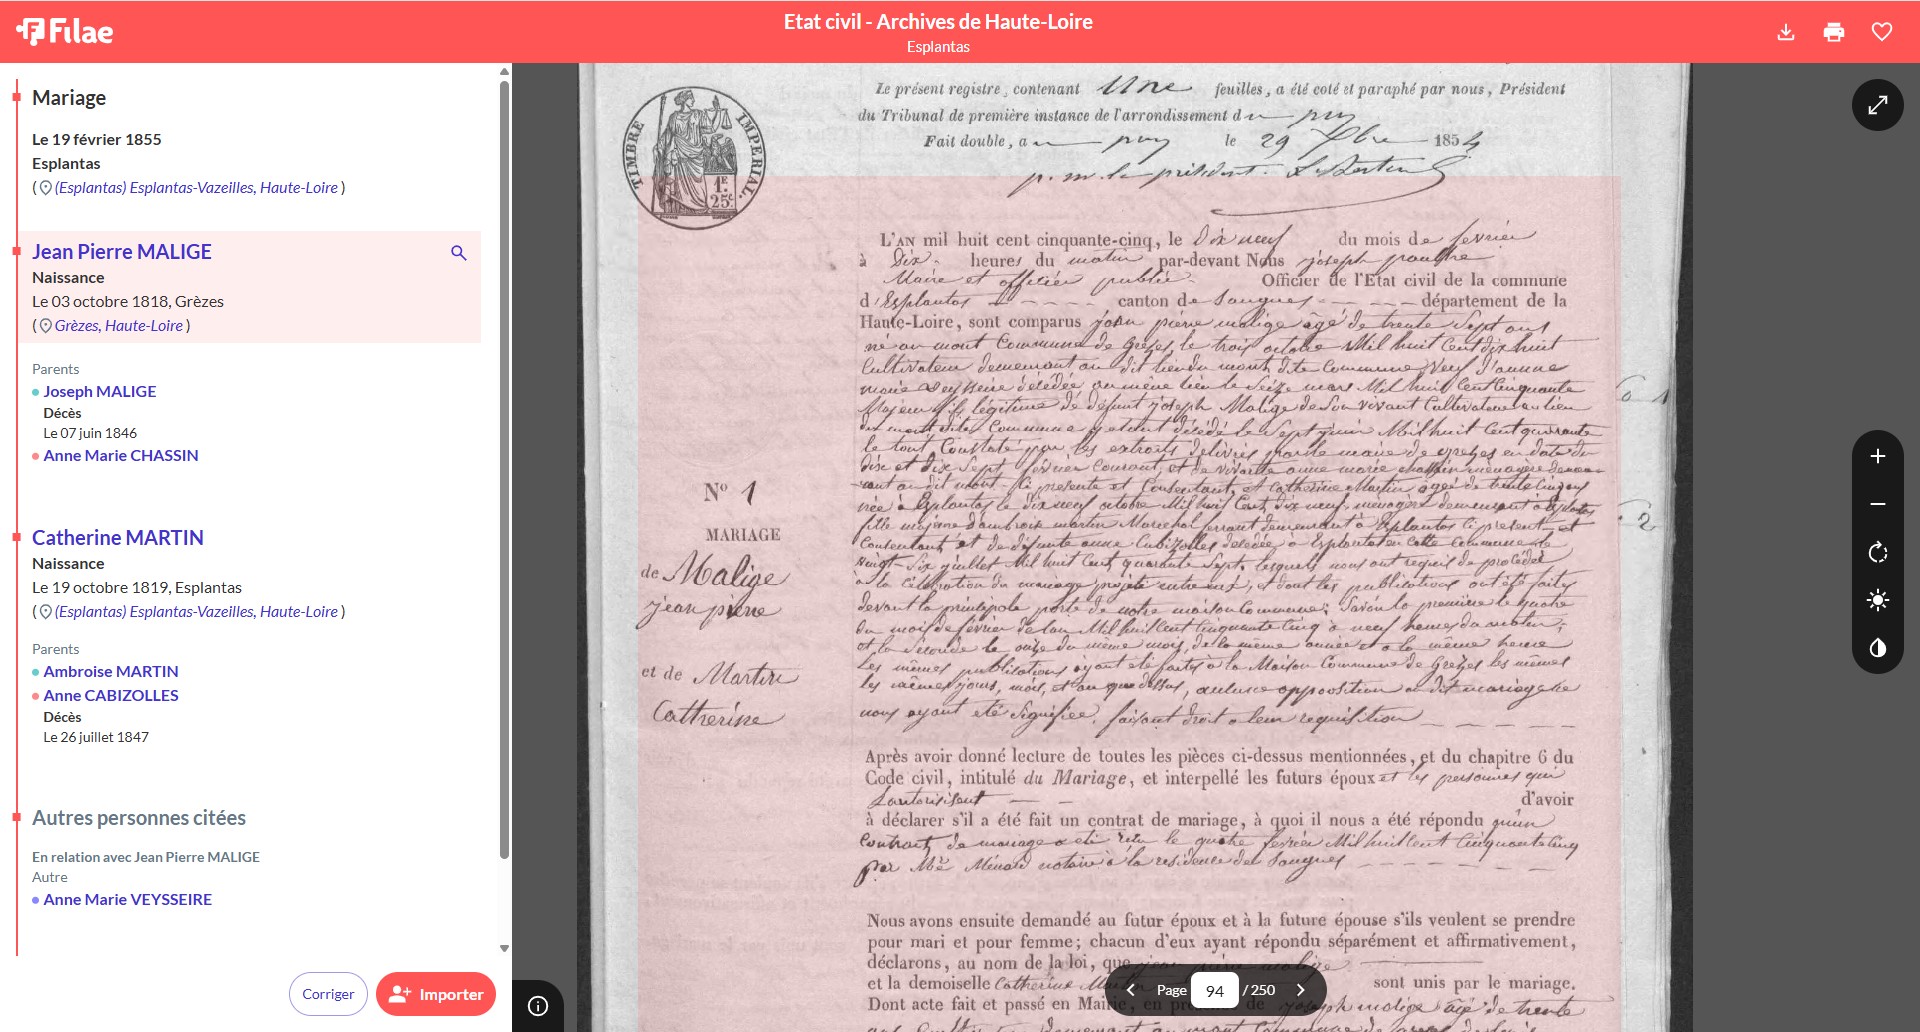 Filae
Etat civil - Archives de Haute-Loire
Esplantas
Mariage
Le 19 février 1855
Esplantas
( (Esplantas) Esplantas-Vazeilles, Haute-Loire )
Jean Pierre MALIGE
Naissance
Le 03 octobre 1818, Grèzes
( Grèzes, Haute-Loire )
Parents
Joseph MALIGE
Décès
Le 07 juin 1846
Anne Marie CHASSIN
Catherine MARTIN
Naissance
Le 19 octobre 1819, Esplantas
( (Esplantas) Esplantas-Vazeilles, Haute-Loire )
Parents
Ambroise MARTIN
Anne CABIZOLLES
Décès
Le 26 juillet 1847
Autres personnes citées
En relation avec Jean Pierre MALIGE
Autre
Anne Marie VEYSSEIRE
Corriger
Importer
TIMBRE IMPERIAL.
1F.
25c
Le présent registre, contenant Une feuilles, a été coté et paraphé par nous, Président
du Tribunal de première instance de l'arrondissement du puy
Fait double, au puy le 29 Xbre 1854
p. m. le président.
L'AN mil huit cent cinquante-cinq, le Dix neuf du mois de fevrier
à Dix heures du matin par-devant Nous joseph
Maire et officier public Officier de l'Etat civil de la commune
d'Esplantas canton de Saugues département de la
Haute-Loire, sont comparus jean pierre malige âgé de trente Sept ans
né au mont Commune de Grèzes, le trois octobre Mil huit Cent dix huit
Cultivateur demeurant au dit lieu du mont dite Commune Veuf d'anne
marie Veysseire décédée au même lieu le Seize mars Mil huit Cent Cinquante
Majeur fils légitime de défunt joseph Malige de Son vivant Cultivateur au lieu
du mont dite Commune y etant décédé le Sept juin Mil huit Cent quarante
le tout Constaté par les extraits delivrés par le maire de Grezes en date du
dix et dix Sept février Courant, et de vivante anne marie chassin ménagère demeu-
rant au dit mont Ci presente et Consentant, et Catherine Martin agée de trente Cinq ans
née à Esplantas le dix neuf octobre Mil huit Cent dix neuf, ménagère demeurant à Esplantas
fille majeure d'ambroise martin Marechal ferrant demeurant à Esplantas Ci present et
Consentant et de defunte anne Cabizolles decedée à Esplantas en cette commune le
vingt-Six juillet Mil huit Cent quarante Sept, lesquels nous ont requis de procéder
à la célébration du mariage projeté entre eux, et dont les publications ont été faites
devant la principale porte de notre maison Commune; Savoir la première le quatre
du mois de février de l'an Mil huit Cent Cinquante Cinq à neuf heures du matin;
et la seconde le onze du même mois, de la même année et a la même heure
Les mêmes publications ayant été faites à la Maison Commune de Grèzes les mêmes
les mêmes jours, mois, et an que dessus, aucune opposition au dit mariage ne
nous ayant eté Signifiée, faisant droit a leur requisition
N° 1
MARIAGE
de Malige
jean pierre
et de Martin
Catherine
1
2
Après avoir donné lecture de toutes les pièces ci-dessus mentionnées, et du chapitre 6 du
Code civil, intitulé du Mariage, et interpellé les futurs époux et les personnes qui
d'avoir
à déclarer s'il a été fait un contrat de mariage, à quoi il nous a été répondu qu'un
Contract de mariage a été reçu le quatre fevrier Mil huit Cent Cinquante Cinq
par Me Ménard notaire à la residence de Saugues
Nous avons ensuite demandé au futur époux et à la future épouse s'ils veulent se prendre
pour mari et pour femme; chacun d'eux ayant répondu séparément et affirmativement,
déclarons, au nom de la loi, que jean pierre malige
et la demoiselle Catherine Martin sont unis par le mariage.
Dont acte fait et passé en Mairie, en présence de joseph malige âgé de trente
Page 94 / 250